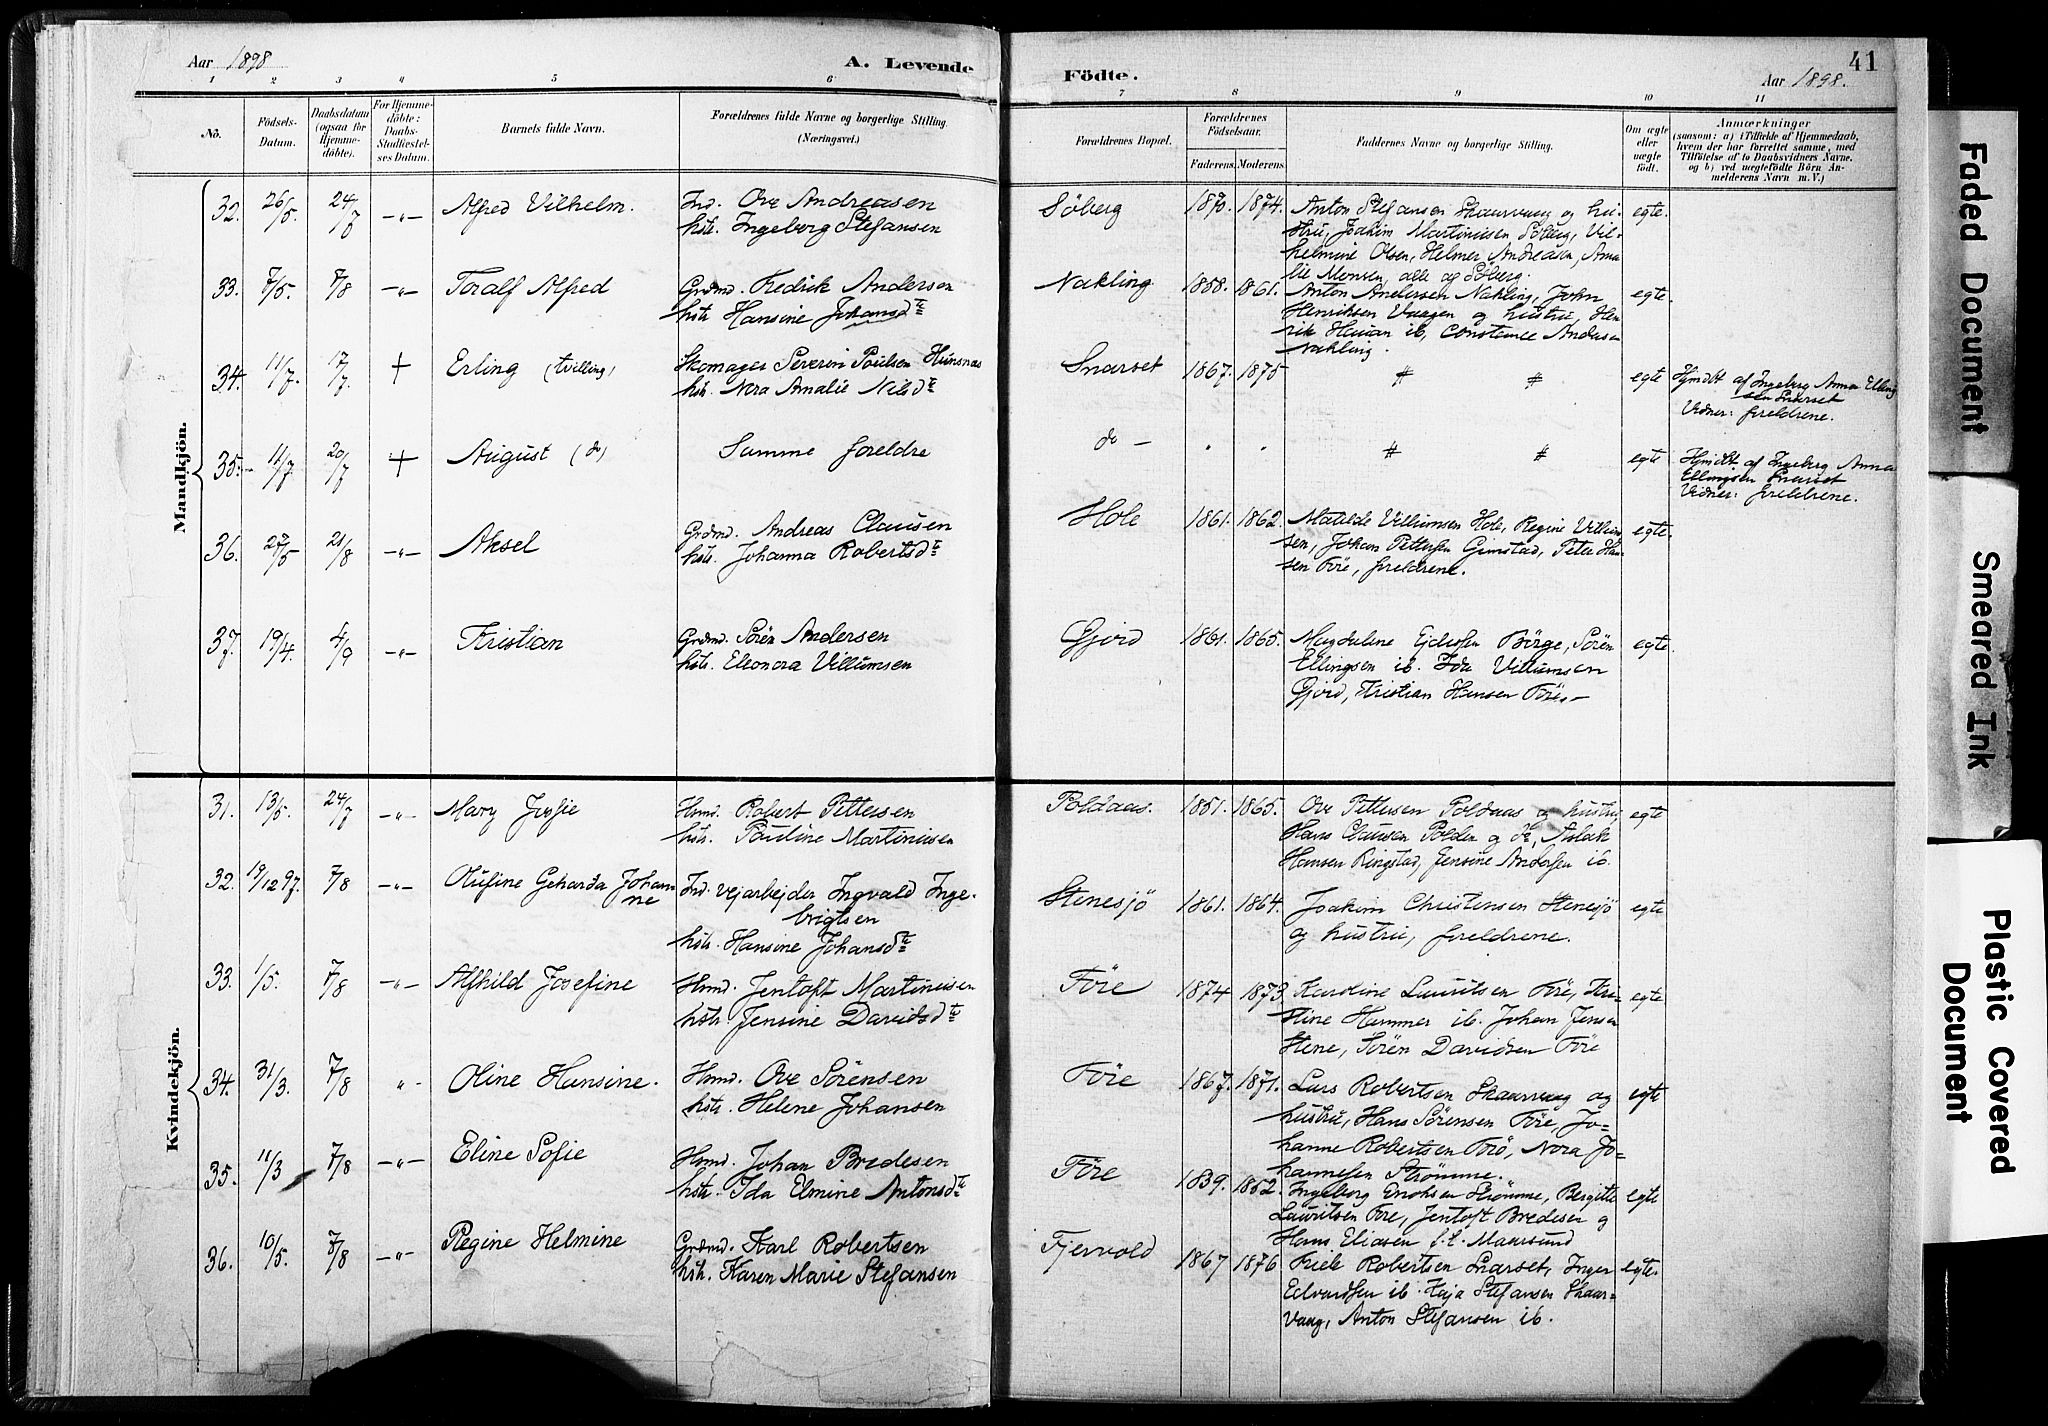 Aar 1898
A. Levende
Födte.
Aar 1898.
41
1 2 3 4 5 6 7 8 9 10 11
No.
Födsels-
Datum.
Daabsdatum
(ogsaa for
Hjemme-
döbte).
For Hjemme-
döbte:
Daabs-
Stadfæstel-
ses Datum.
Barnets fulde Navn.
Forældrenes fulde Navne og borgerlige Stilling.
(Næringsvei.)
Forældrenes Bopæl.
Forældrenes
Födselsaar.
Faderens. Moderens.
Faddernes Navne og borgerlige Stilling.
Om ægte
eller
uægte
födt.
Anmærkninger
(saasom: a) i Tilfælde af Hjemmedaab,
hvem der har forrettet samme, med
Tilföielse af to Daabsvidners Navne.
og b) ved uægtefödte Börn An-
melderens Navn m. V.)
Mandkjön.
32. 26/5. 24/7 -"- Alfred Vilhelm. Ind. Ove Andreasen
hstr. Ingeborg Stefansen
Söberg 1870. 1874. Anton Stefansen Skaarvaag og hu-
stru, Joakim Martinusen Söberg, Vil-
helmine Olsen, Helmer Andreasen, Ama-
lie Monsen, alle og Söberg.
egte.
33. 7/5. 7/8 -"- Toralf Alfred Grdmd. Fredrik Andersen
hstr Hansine Johansd
Nakling 1858. 1861. Anton Andersen Nakling, John
Henriksen Vaagen og hustru, Hen-
rik Hauan ib, Constance Andersen
Nakling.
egte.
34. 11/7. 17/7. + Erling (tvilling) Skomager Severin Poulsen Hunsnas
hstr. Nora Amalie Nilsd
Snarset 1867. 1875 # # egte Hjmdbt af Ingeborg Anna Elling
sen Snarset
Vidner: forældrene.
35. 11/7 20/7 + August (do) Samme foreldre
do - " " # # egte Hjmdbt af Ingeborg Anna
Ellingsen Snarset
Vidner: foreldrene.
36. 27/5 21/8 -"- Aksel Grdmd. Andreas Clausen
hstr. Johanna Robertsd
Hole 1861. 1862. Matilde Villumsen Hole, Regine Villum
sen, Johan Pettersen Gimstad, Peter Han-
sen Före, foreldrene.
egte.
37. 19/4. 4/9 -"- Kristian Grdmd. Sören Andersen
hstr. Eleonora Villumsen
Gjerd 1861. 1865. Magdalene Börge, Sören
Ellingsen ib. Ida Villumsen
Gjerd, Kristian Hansen Före -
egte.
Kvindekjön.
31. 13/5. 24/7 -"- Mary Jossie Hsmd. Robert Pettersen
hstr. Pauline Martinusen
Poldaas. 1851. 1865. Ove Pettersen Poldaas og hustru,
Hans Clausen Polden og do, Aslak
Hansen Ringstad, Jensine Andersen ib.
egte
32. 19/12 97. 7/8 -"- Olufine Geharda Johan-
ne
Ind. vejarbejder Ingvald Inge-
brigtsen
hstr. Hansine Johansd
Stenesjö 1861. 1864. Joakim Christensen Stenesjö
og hustru, foreldrene.
egte
33. 1/5. 7/8 -"- Alfhild Josefine Hsmd. Jentoft Martinusen
hstr. Jensine Davidsd
Före 1874 1873 Karoline Lauritsen Före, Kri-
stine Hammer ib. Johan Jensen
Stene, Sören Davidsen Före
egte
34. 31/3. 7/8 " - Oline Hansine. Hsmd. Ove Sörensen
hstr. Helene Johansen
Före 1867. 1871. Lars Robertsen Skaarvaag og
hustru, Hans Sörensen Före, Jo-
hanne Robertsen Förö, Nora Jo-
hannesen Strömme.
egte
35. 11/3 7/8 -"- Eline Sofie Hsmd. Johan Bredesen
hstr. Ida Elmine Antonsd
Före 1839. 1852. Ingeborg Enoksen Strömme, Bergitte
Lauritsen Före, Jentoft Bredesen og
Hans Eliasen f.t. Maursund
egte
36. 10/5. 7/8 -"- Regine Helmine Grdmd. Karl Robertsen
hstr. Karen Marie Stefansen
Fjervold 1867 1876 Robertsen Snarset, Inger
Edvardsen ib. Kaja Stefansen Skaar-
vaag, Anton Stefansen ib.
egte.
Faded Document
Smeared Ink
Plastic Covered
Document